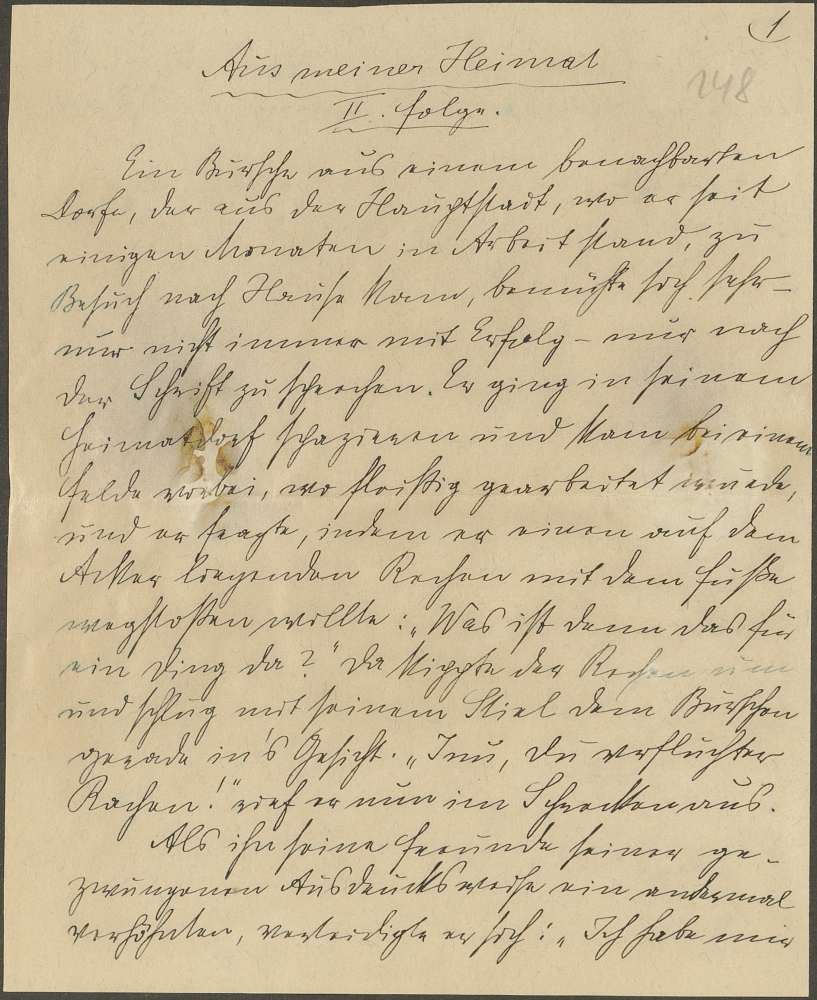 1
Aus meiner Heimat
248
II. Folge.
Ein Bursche aus einem benachbarten
Dorfe, der aus der Hauptstadt, wo er seit
einigen Monaten in Arbeit stand, zu
Besuch nach Hause kam, bemühte sich sehr –
nur nicht immer mit Erfolg – nur nach
der Schrift zu sprechen. Er ging in seinem
Heimatdorf spazieren und kam bei einem
Felde vorbei, wo fleißig gearbeitet wurde,
und er fragte, indem er einen auf dem
Acker liegenden Rechen mit dem Fuße
wegstoßen wollte: „Was ist denn das für
ein Ding da?" Da kippte der Rechen um
und schlug mit seinem Stiel dem Burschen
gerade in's Gesicht. „Inu, du verfluchter
Rachen!" rief er nun im Schrecken aus.
Als ihn seine Freunde seiner ge-
zwungenen Ausdrucksweise ein andermal
verhöhnten, verteidigte er sich: „Ich habe mir